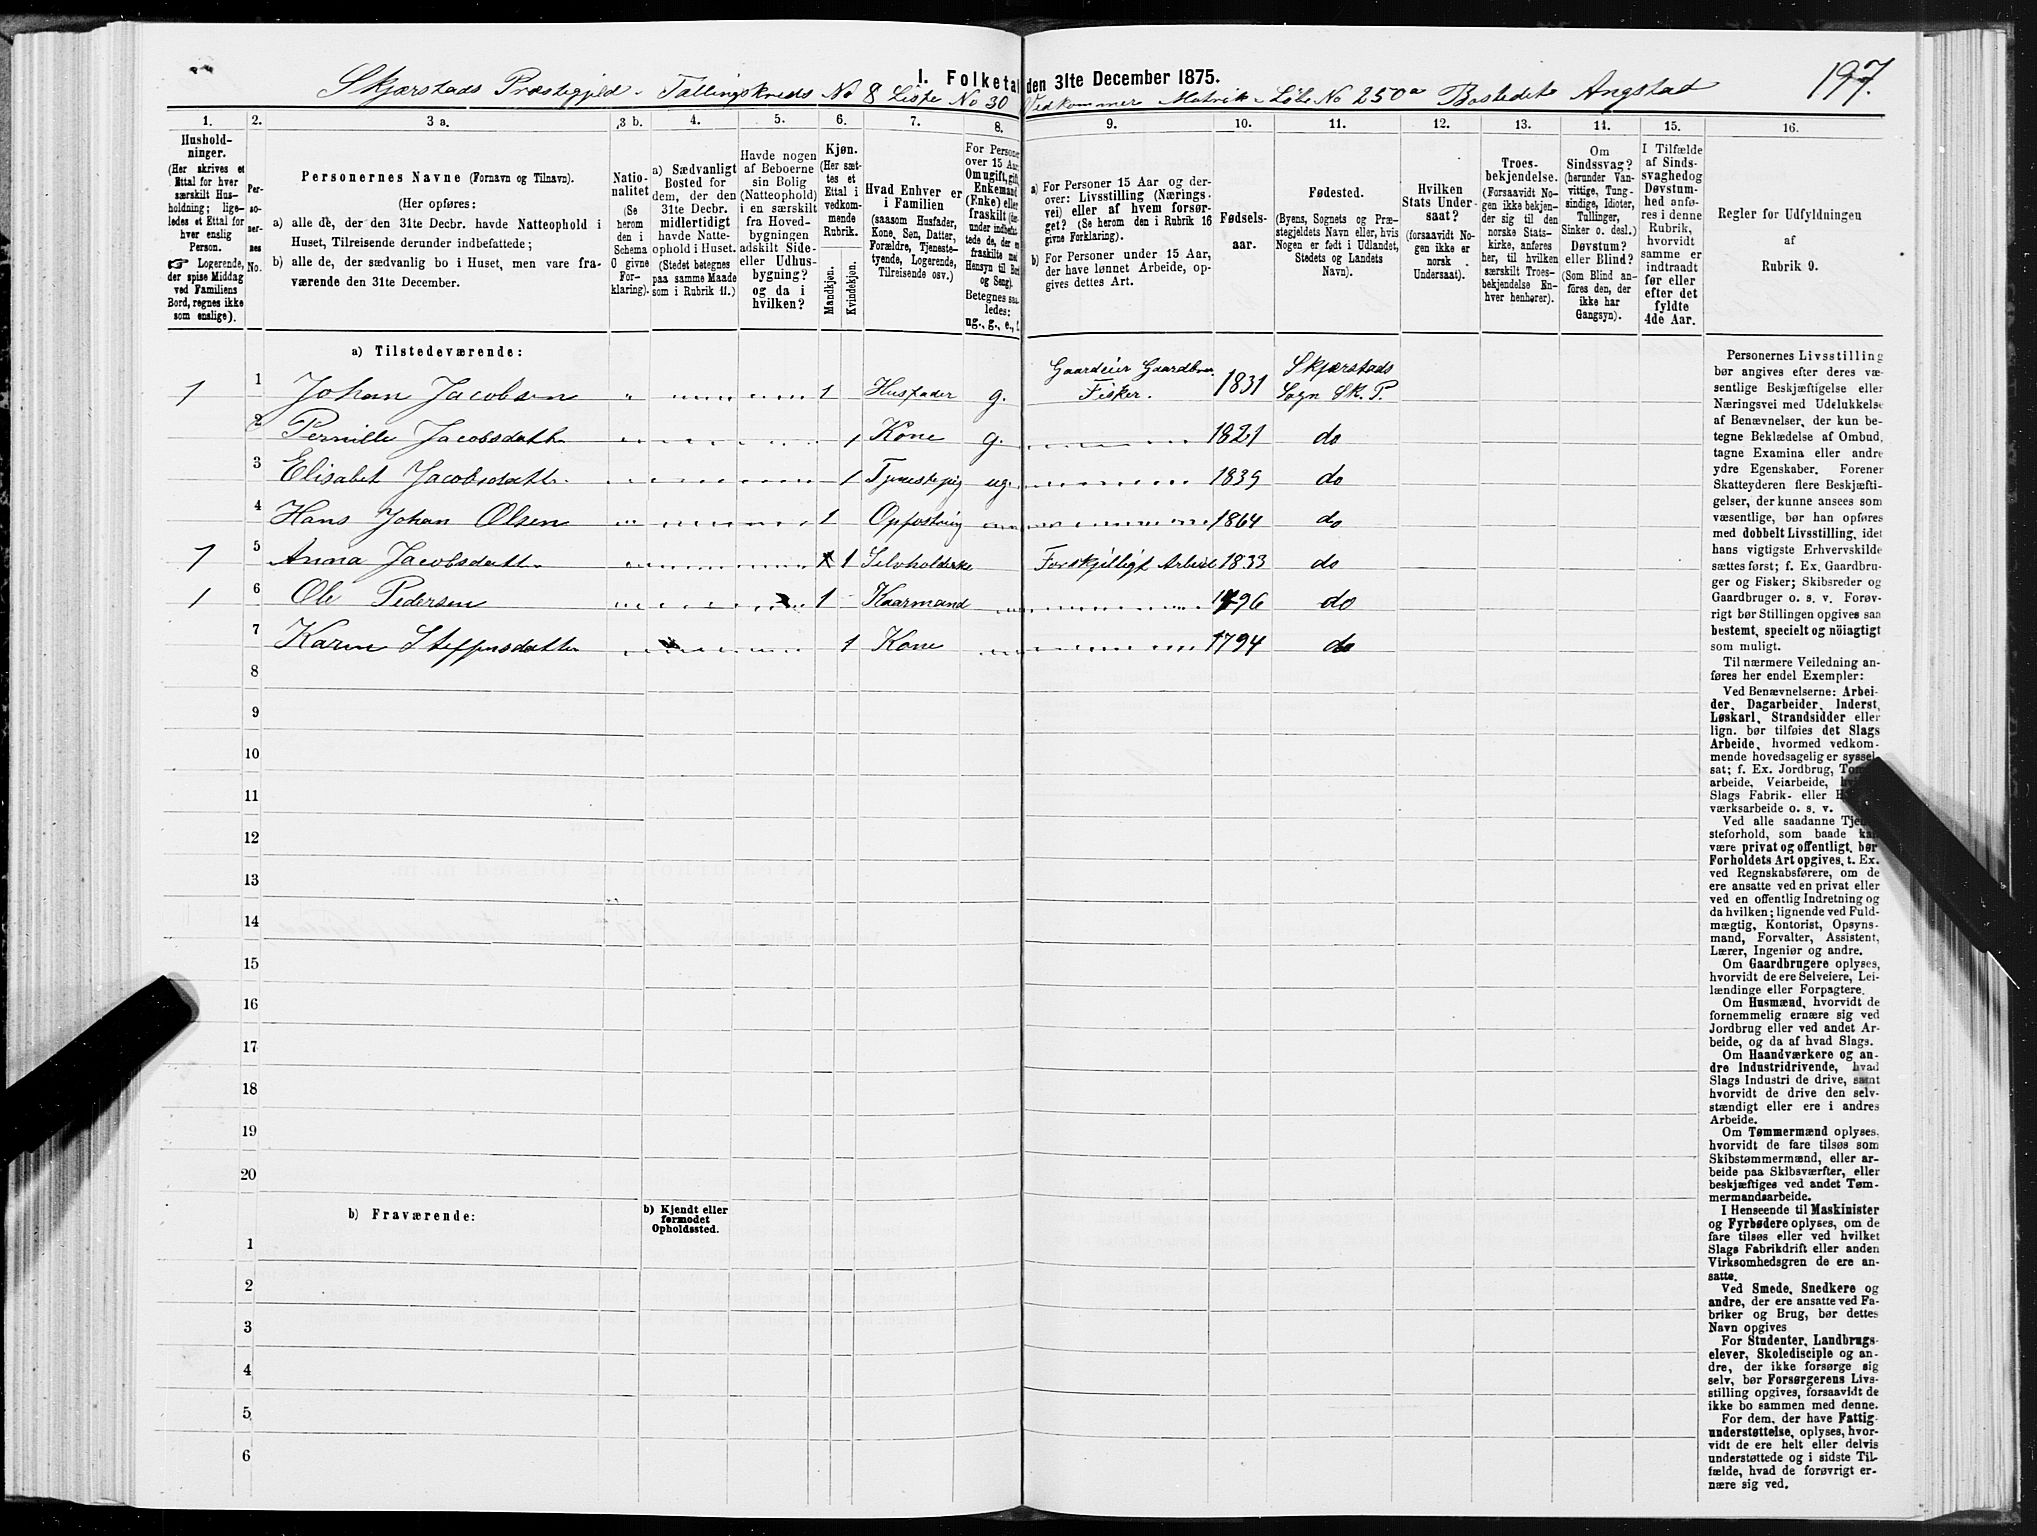 I. Folketal den 31te December 1875.
197.
Skjærstads Præstegjeld. Tællingskreds No 8 Liste No 30 Vedkommer Matrik-Løbe No 250a Bostedet Angstad
1. 2. 3 a. 3 b. 4. 5. 6. 7. 8. 9. 10. 11. 12. 13. 14. 15. 16.
Hushold-
ninger.
(Her skrives et
Ettal for hver
særskilt Hus-
holdning; lige-
ledes et Ettal for
hver enslig
Person.
☞ Logerende,
der spise Middag
ved Familiens
Bord, regnes ikke
som enslige).
Per-
so-
ner-
nes
No.
Personernes Navne (Fornavn og Tilnavn).
(Her opføres:
a) alle de, der den 31te Decbr. havde Natteophold i
Huset, Tilreisende derunder indbefattede;
b) alle de, der sædvanlig bo i Huset, men vare fra-
værende den 31te December.
Natio-
nalitet
(Se
herom
den i
Schema
O givne
For-
klaring).
a) Sædvanligt
Bosted for
dem, der den
31te Decbr.
midlertidigt
havde Natte-
ophold i Huset.
(Stedet betegnes
paa samme Maade
som i Rubrik 11.)
Havde nogen
af Beboerne
sin Bolig
(Natteophold)
i en særskilt
fra Hoved-
bygningen
adskilt Side-
eller Udhus-
bygning?
og da i
hvilken?
Kjøn.
(Her sæt-
tes et
Ettal i
vedkom-
mende
Rubrik.
Mandkjøn.
Kvindekjøn.
Hvad Enhver er
i Familien
(saasom Husfader,
Kone, Søn, Datter,
Forældre, Tjeneste-
tyende, Logerende,
Tilreisende osv.)
For Personer
over 15 Aar:
Om ugift, gift,
Enkemand
(Enke) eller
fraskilt
Betegnes saa-
ledes:
ug., g., e., f.
a) For Personer 15 Aar og der-
over: Livsstilling (Nærings-
vei) eller af hvem forsør-
get? (Se herom den i Rubrik 16
givne Forklaring).
b) For Personer under 15 Aar,
der have lønnet Arbeide, op-
gives dettes Art.
Fødsels-
aar.
Fødested.
(Byens, Sognets og Præ-
stegjeldets Navn eller, hvis
Nogen er født i Udlandet,
Stedets og Landets
Navn).
Hvilken
Stats Under-
saat?
(forsaavidt No-
gen ikke er
norsk
Undersaat).
Troes-
bekjendelse.
(Forsaavidt No-
gen ikke bekjen-
der sig til den
norske Stats-
kirke, anføres
her, til hvilken
særskilt Troes-
bekjendelse En-
hver henhører).
Om
Sindssvag?
(herunder Van-
vittige, Tung-
sindige, Idioter,
Tullinger,
Sinker o. desl.)
Døvstum?
eller Blind?
(Som Blind an-
føres den, der
ikke har
Gangsyn).
I Tilfælde
af Sinds-
svaghed og
Døvstum-
hed anfø-
res i denne
Rubrik,
hvorvidt
samme er
indtraadt
før eller
efter det
fyldte
4de Aar.
Regler for Udfyldningen
af
Rubrik 9.
a) Tilstedeværende:
1 1 Johan Jacobsen 1 Husfader g. Gaardeier Gaardbr. Fisker. 1831 Skjærstads Sogn Sk. P.
2 Pernille Jacobsdatt 1 Kone g. 1821 do
3 Elisabet Jacobsdatt 1 Tjenestepig ug. 1839 do
4 Hans Johan Olsen 1 Opfostring 1864 do
1 5 Anna Jacobsdatt 1 Selvholderske Forskjelligt Arbeid 1833 do
1 6 Ole Pedersen 1 Kaarmand 1796 do
7 Karen Steffensdatter 1 Kone 1794 do
8
9
10
11
12
13
14
15
16
17
18
19
20
b) Fraværende:
b) Kjendt eller
formodet
Opholdssted.
1
2
3
4
5
6
Personernes Livsstilling
bør angives efter deres væ-
sentlige Beskjæftigelse eller
Næringsvei med Udelukkelse
af Benævnelser, der kun be-
tegne Beklædelse af Ombud,
tagne Examina eller andre
ydre Egenskaber. Forener
Skatteyderen flere Beskjæfti-
gelser, der kunne ansees som
væsentlige, bør han opføres
med dobbelt Livsstilling, idet
hans vigtigste Erhvervskilde
sættes først; f. Ex. Gaardbru-
ger og Fisker; Skibsreder og
Gaardbruger o. s. v. Forøv-
rigt bør Stillingen opgives saa
bestemt, specielt og nöiagtigt
som muligt.
Til nærmere Veiledning an-
føres her endel Exempler:
Ved Benævnelserne: Arbei-
der, Dagarbeider, Inderst,
Løskarl, Strandsidder eller
lign. bør tilføies det Slags
Arbeide, hvormed vedkom-
mende hovedsagelig er syssel-
sat; f. Ex. Jordbrug,
arbeide, Veiarbeide,
Slags Fabrik- eller
værksarbeide o. s. v.
Ved alle saadanne
steforhold, som baade
være privat og offentligt, bør
Forholdets Art opgives, t. Ex.
ved Regnskabsførere, om de
ere ansatte ved en privat eller
ved en offentlig Indretning og
da hvilken; lignende ved Fuld-
mægtig, Kontorist, Opsyns-
mand, Forvalter, Assistent,
Lærer, Ingeniør og andre.
Om Gaardbrugere oplyses,
hvorvidt de ere Selveiere, Lei-
lændinge eller Forpagtere.
Om Husmænd, hvorvidt de
fornemmelig ernære sig ved
Jordbrug eller ved andet Ar-
beide, og da af hvad Slags.
Om Haandværkere og an-
dre Industridrivende, hvad
Slags Industri de drive, samt
hvorvidt de drive den selv-
stændigt eller ere i andres
Arbeide.
Om Tømmermænd oplyses,
hvorvidt de fare tilsøs som
Skibstømmermænd, eller ar-
beide paa Skibsværfter, eller
beskjæftiges ved andet Tøm-
mermandsarbeide.
I Henseende til Maskinister
og Fyrbødere oplyses, om de
fare tilsøs eller ved hvilket
Slags Fabrikdrift eller anden
Virksomhedsgren de ere an-
satte.
Ved Smede, Snedkere og
andre, der ere ansatte ved Fa-
briker og Brug, bør dettes
Navn opgives
For Studenter, Landbrugs-
elever, Skoledisciple og an-
dre, der ikke forsørge sig
selv, bør Forsørgerens Livs-
stilling opgives, forsaavidt de
ikke bo sammen med denne.
For dem, der have Fattig-
understøttelse, oplyses, hvor-
vidt de ere helt eller delvis
understøttede og i sidste Til-
fælde, hvad de forøvrigt er-
nære sig ved.